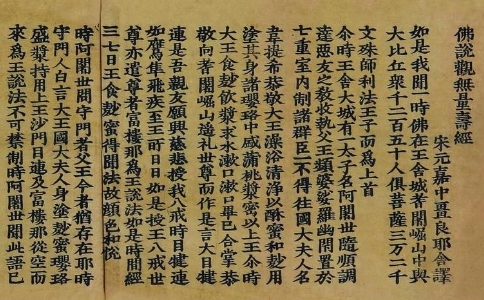 佛説觀無量壽經
宋元嘉中畺良耶舍譯
如是我聞一時佛在王舍城耆闍崛山中與
大比丘衆千二百五十人俱菩薩三万二千
文殊師利法王子而為上首
尒時王舍大城有一太子名阿闍世隨順調
達惡友之教收執父王頻婆娑羅幽閇置於
七重室内制諸群臣一不得往國大夫人名
韋提希恭敬大王澡浴清淨以酥蜜和麨用
塗其身諸瓔珞中盛蒲桃漿密以上王尒時
大王食麨飲漿求水漱口漱口畢已合掌恭
敬向耆闍崛山遥礼世尊而作是言大目犍
連是吾親友願興慈悲授我八戒時目犍連
如鷹隼飛疾至王所日日如是授王八戒世
尊亦遣尊者富樓那為王說法如是時間經
三七日王食麨蜜得聞法故顏色和悅
時阿闍世問守門者父王今者猶存在耶時
守門人白言大王國大夫人身塗麨蜜瓔珞
盛漿持用上王沙門目連及富樓那從空而
來為王說法不可禁制時阿闍世聞此語已